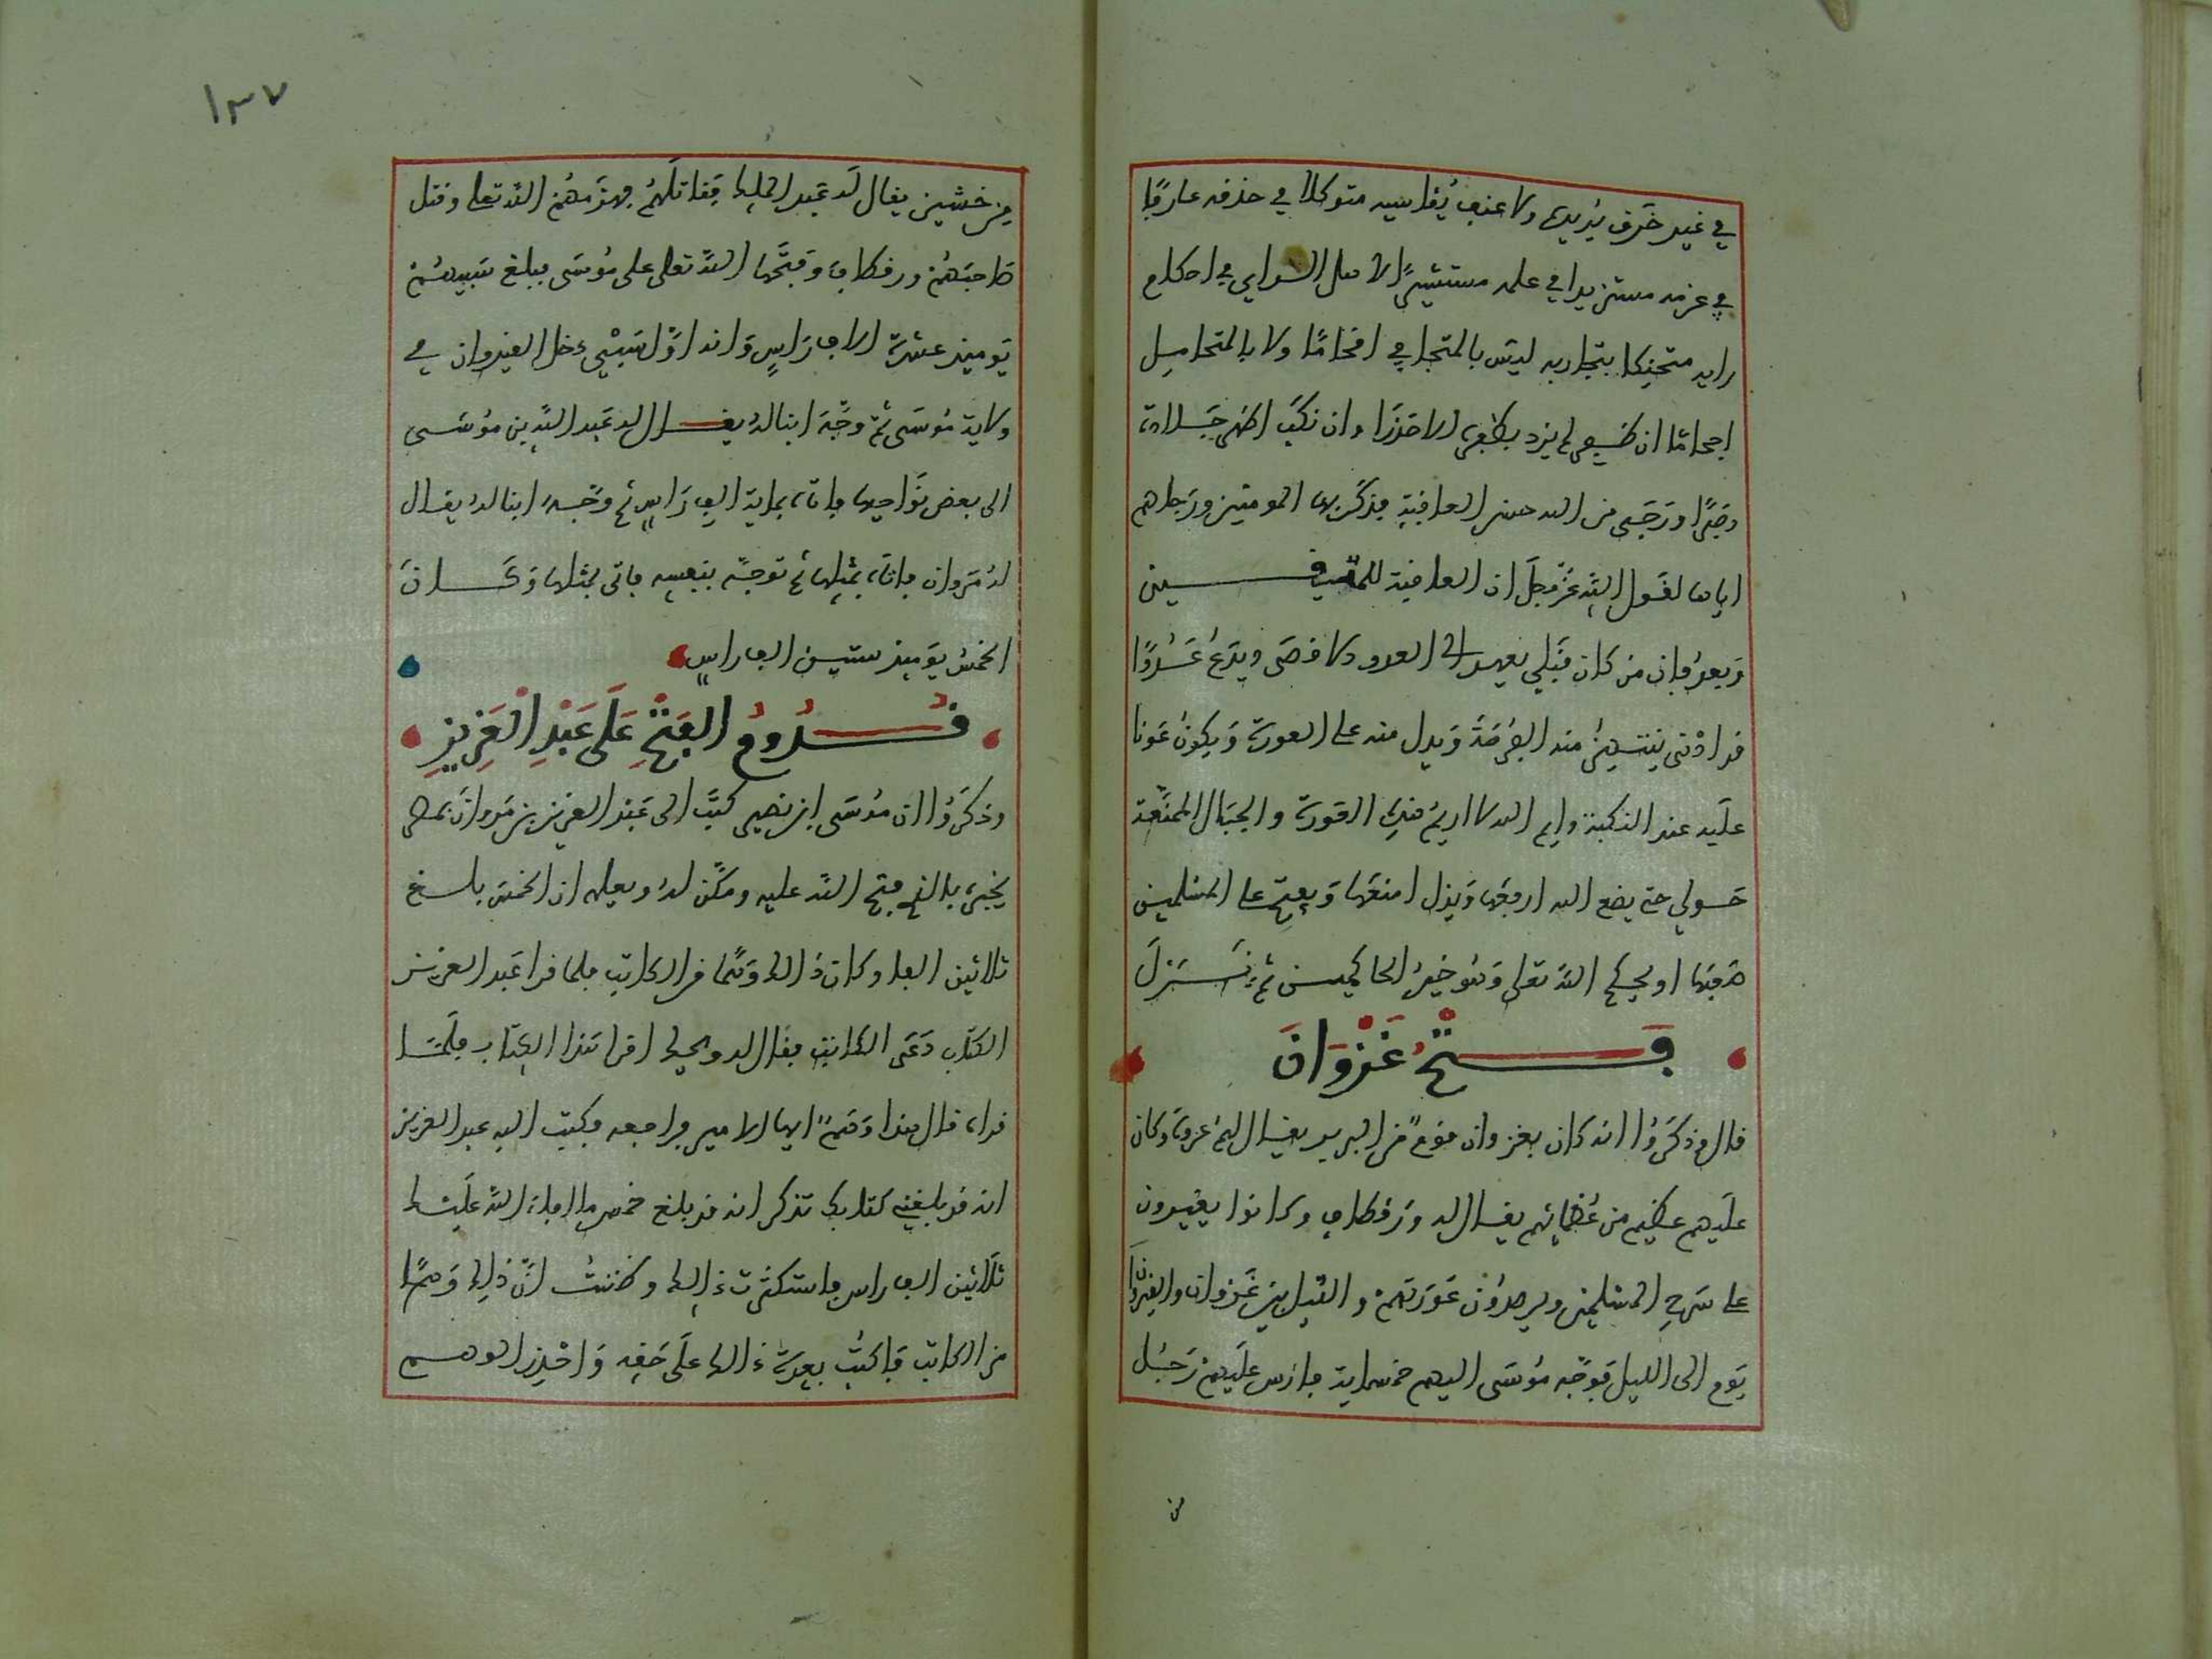 في غير خرف يريده ولا عنف يقاسيه متوكلا في حذفه عارفا
في عزمه مستزيدا في علمه مستشيرًا لاهل الراي في احكام
رايه متحنكا بتجاربه ليس بالمتجافي افحامًا ولا بالمتخاميل
احجامًا ان ظفر لم يزده الظفر الا حذرًا وان نكب اظهر جلادة
وصبرًا ورجى من الله حسن العافية فذكر بها المومنين ورجاهم
اياها لقول الله عز وجل ان العاقبة للمتقيــــن
وبعد فان من كان قبلي يعمد الى العدو الاقصى ويدع عدوًا
منه ادنى ينتهز منه الفرصة ويدل منه على العورة ويكون عونا
عليه عند النكبة وايم الله لا اريم هذه القورة والجبال الممنعة
حولي حتى يضع الله ارفعها ويذل امنعها ويفتح على المسلمين
بعضها او يحكم الله تعلى وهو خير الحاكمين ثم نزل
فــــتح غزوان
قال وذكروا انه كان بغزوان قوم من البربر يقال لهم عزوة وكان
عليهم عظيم من عظمائهم يقال له ورفطاف وكانوا يغيرون
على سرح المسلمين ويرصدون عورتهم والقبل بين غزوان والقيروان
يوم الى الليل فوجه موسى اليهم خمسماية فارس عليهم رجل
من
١٣٧
من خشين يقال له عبد الملك فقاتلهم فهزمهم الله تعلى وقتل
صاحبهم ورفطاف وفتحها الله تعلى على موسى فبلغ سبيهم
يوميذ عشرة الاف راس وانه اول سبي دخل القيروان في
ولاية موسى ثم وجه ابنا له يقــال له عبد الله بن موسى
الى بعض نواحيها فاتاه بماية الف راس ثم وجه ابنا له يقال
له مروان فاتاه بمثلها ثم توجه بنفسه فاتى بمثلها وكــان
الخمس يوميذ ستين الف راس
قــــدوم الفتح على عبد العزيز
وذكروا ان موسى ابن نصير كتب الى عبد العزيز بن مروان بمصر
يخبره بالذي فتح الله عليه ومكن له ويعلمه ان الخمس بلــغ
ثلاثين الفا وكان ذالك وهما من الكاتب فلما قرا عبد العزيز
الكتاب دعى الكاتب فقال له ويحك اقرا هذا الكتاب فلمـا
قراه قال هذا وهم ايها الامير فراجعه فكتب اليه عبد العزيز
انه قد بلغني كتابك تذكر انه قد بلغ خمس ما افاء الله عليك
ثلاثين الف راس فاستكثرت ذالك وظننت ان ذلك وهمًا
من الكاتب فاكتب بعد ذالك على حقه واحذر الوهــم